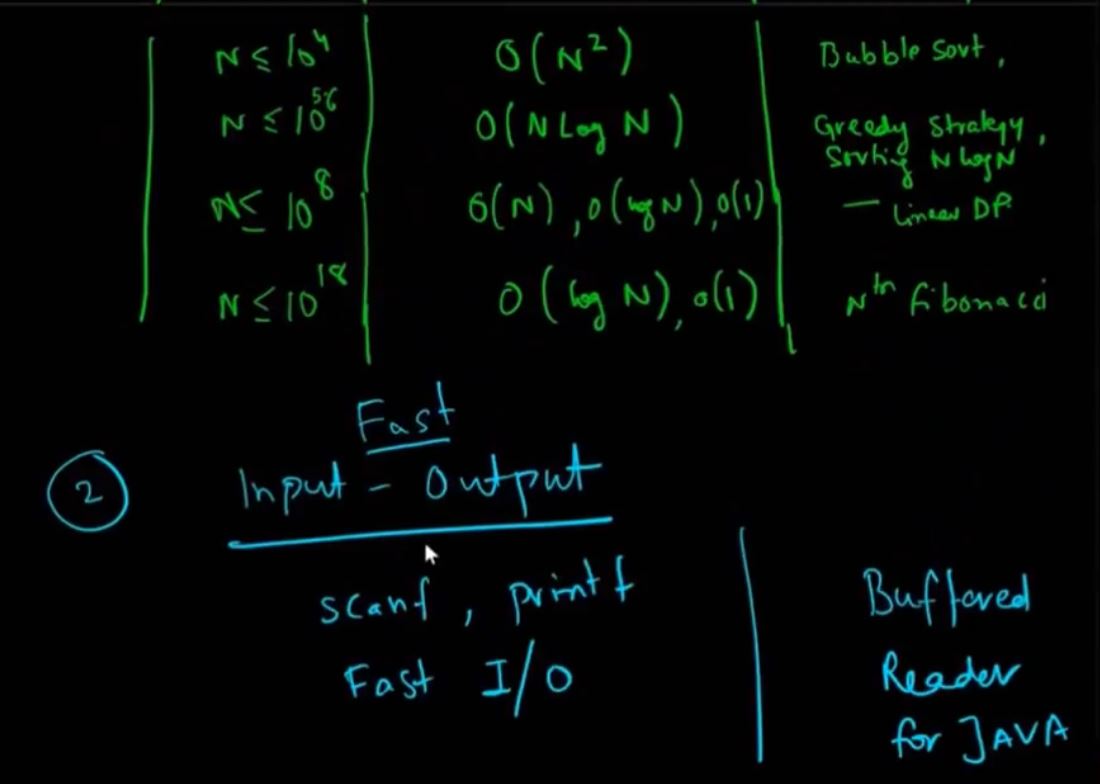 N ≤ 10⁴ O(N²) Bubble Sort,
N ≤ 10⁵⁶ O(N Log N) Greedy Strategy,
Sorting N log N
N ≤ 10⁸ O(N), O(log N), O(1) — Linear DP.
N ≤ 10¹⁸ O(log N), O(1) Nth fibonacci
2
Fast
Input - Output
scanf, printf
Fast I/O
Buffered
Reader
for JAVA